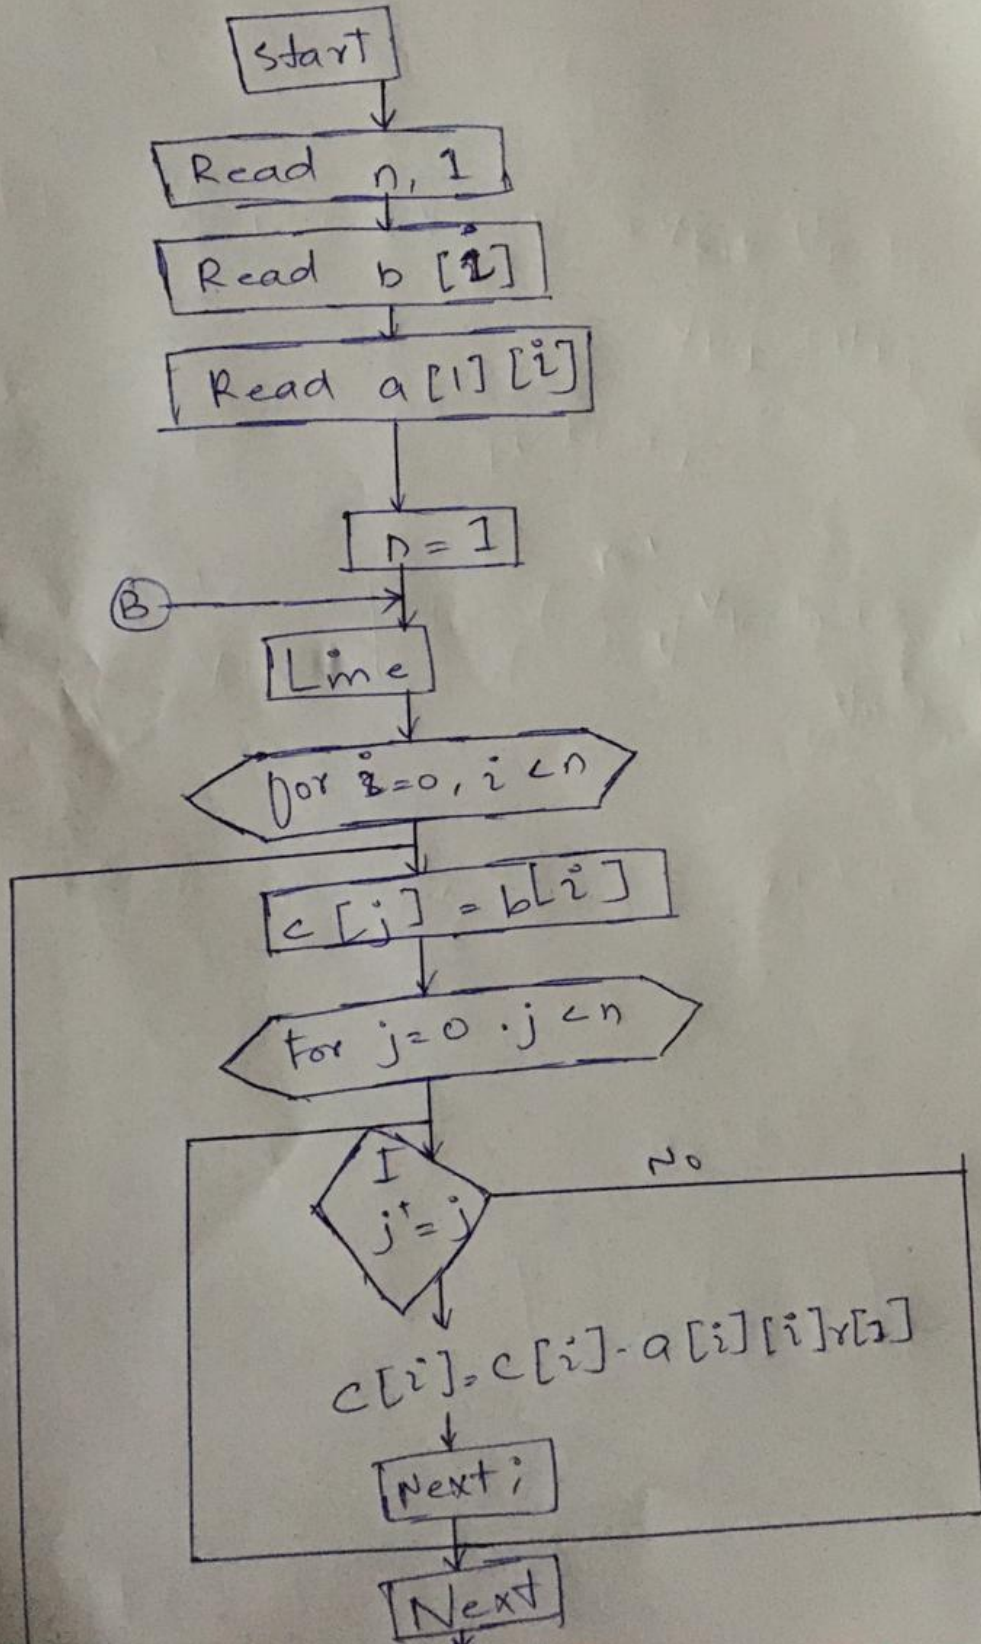 Start
Read n, 1
Read b [i]
Read a [1] [i]
n = 1
B
Line
for i=0, i <n
c [j] = b[i]
For j=0 . j <n
No
I
j+=j
c[i]=c[i]-a[i][i]r[2]
Next j
Next